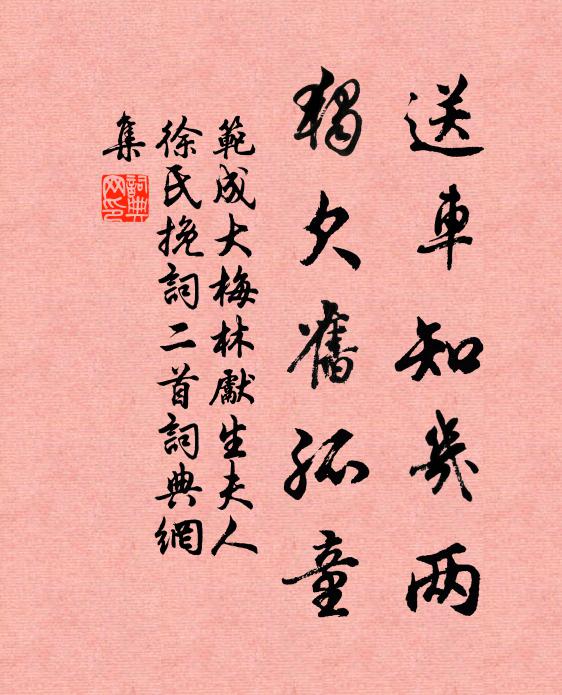 送車知幾两
獨欠舊孤童
範成大梅林獻生夫人
徐民挽詞二首詞典網
集
詞典网印